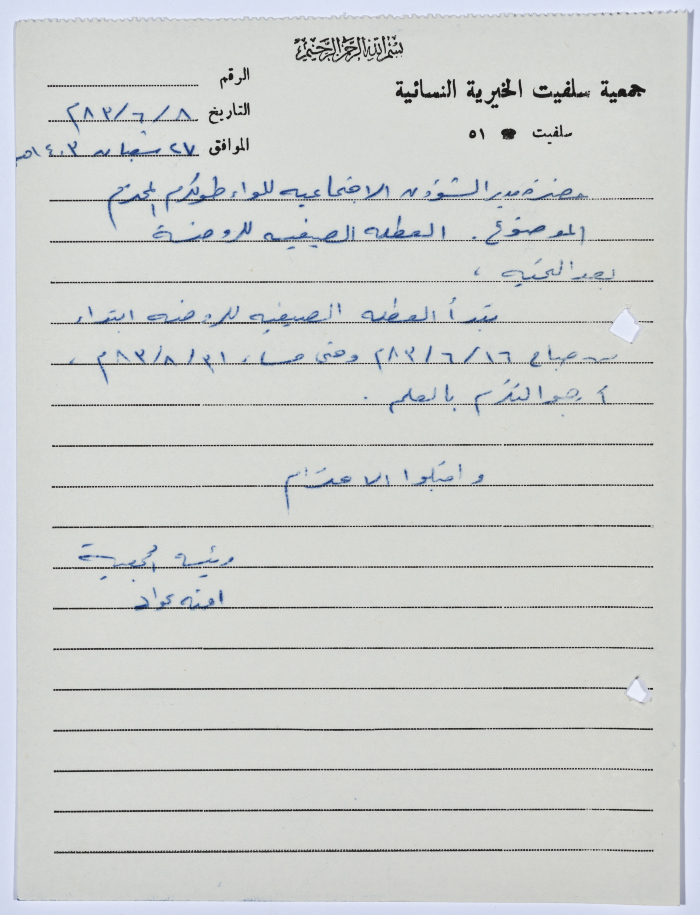 بسم الله الرحمن الرحيم
جمعية سلفيت الخيرية النسائية
سلفيت ☎ ٥١
الرقم
التاريخ ٨ / ٦ / ٨٣م
الموافق ٢٧ شعبان ١٤٠٣هـ
حضرة مدير الشؤون الاجتماعيه للواء طولكرم المحترم
الموضوع . العطله الصيفيه للروضة
بعد التحيه ،
تبدأ العطله الصيفيه للروضه ابتداء
من صباح ١٦ / ٦ / ٨٣م وحتى مساء ٣١ / ٨ / ٨٣م ،
أرجو التكرم بالعلم .
واقبلوا الاحترام
رئيسة الجمعية
امنه عواد